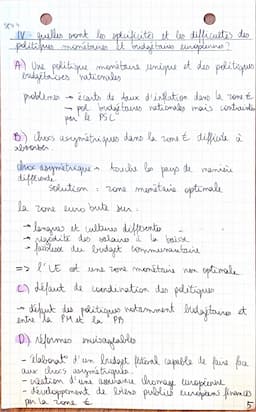 IV - quelles sont les spécificités et les difficultés des
politiques monétaires et budgétaires européennes ?
A) Une politique monétaire unique et des politiques
budgétaires nationales
problèmes → écarts de taux d'inflation dans la zone €
→ pol budgétaires nationales mais contraintes
par le PSC
B) chocs asymétriques dans la zone € difficile à
absorber
choc asymétrique → touche les pays de manière
différente
Solution : zone monétaire optimale
la zone euro bute sur :
→ langues et cultures différentes
→ rigidité des salaires à la baisse
→ faiblesse du budget communautaire
=> l'UE est une zone monétaire non optimale
C) défaut de coordination des politiques
→ défaut des politiques notamment budgétaires et
entre la PM et la PB
D) réformes envisageables
- élaborat° d'un budget fédéral capable de faire face
aux chocs asymétriques.
- création d'une assurance chomage européenne
- développement de biens publics européens financés
par la zone €
5